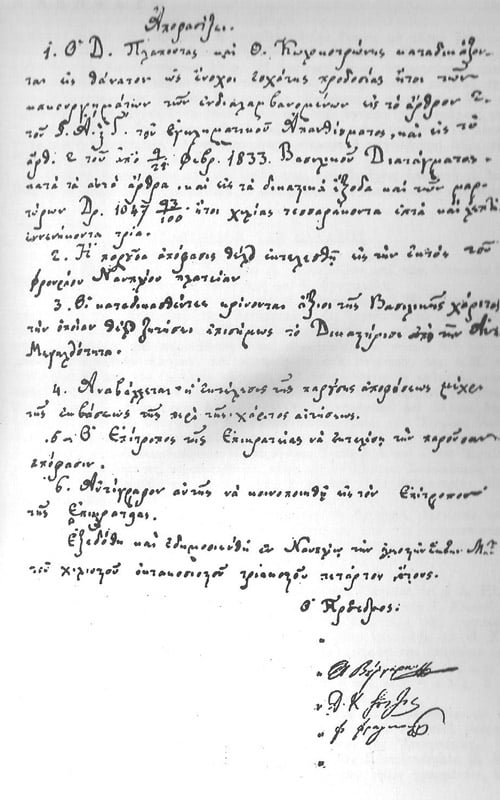 Αποφασίζει.
1. Ο Δ. Πλαπούτας και Θ. Κολοκοτρώνης καταδικάζον-
ται εις θάνατον ως ένοχοι εσχάτης προδοσίας ήτοι των
κακουργημάτων των ενδιαλαμβανομένων εις το άρθρον 2
του του εγκληματικού Απανθίσματος, και εις το
άρθ. 2 του από 9/21 Φεβρ. 1833. Βασιλικού Διατάγματος.
κατά τα αυτά άρθρα, και εις τα δικαστικά έξοδα και των μαρ-
τύρων Δρ. 1047 93/100 ήτοι χιλίας τεσσαράκοντα επτά και λεπτά
εννενήκοντα τρία.
2. Η παρούσα απόφασις θέλει εκτελεσθή εις την εκτός του
φρουρίου Ναυπλίου πλατείαν.
3. Οι καταδικασθέντες κρίνονται άξιοι της Βασιλικής χάριτος
την οποίαν θέλει ζητήσει επισήμως το Δικαστήριον από την
Μεγαλειότητα.
4. Αναβάλλεται η εκτέλεσις της παρούσης αποφάσεως μέχρι
της εκβάσεως της περί της χάριτος αιτήσεως.
5 Ο Επίτροπος της Επικρατείας να εκτελέση την παρούσαν
απόφασιν.
6. Αντίγραφον αυτής να κοινοποιηθή εις τον Επίτροπον
της Επικρατείας.
Εξεδόθη και εδημοσιεύθη εν Ναυπλίω την
του χιλιοστού οκτακοσιοστού τριακοστού τετάρτου έτους.
Ο Πρόεδρος: